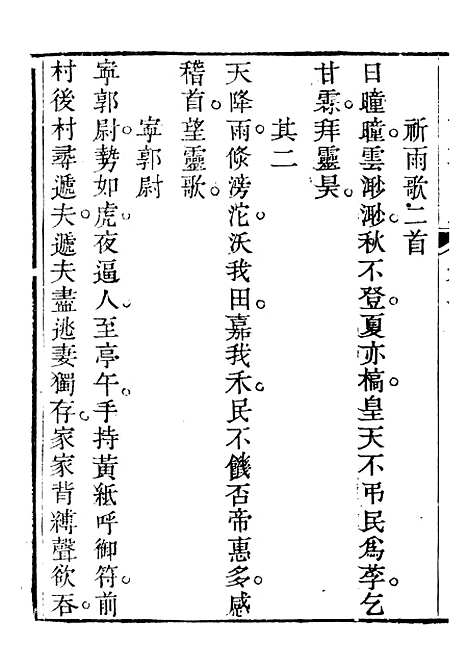 祈雨歌二首
日瞳瞳雲渺渺秋不登夏亦槁皇天不弔民為莩乞
甘霖拜靈昊
其二
天降雨倐滂沱沃我田嘉我禾民不饑否帝惠多感
稽首望靈歌
寧郭尉
寧郭尉勢如虎夜逼人至亭午手持黃紙呼御符前
村後村尋遞夫遞夫盡逃妻獨存家家背縛聲欲吞